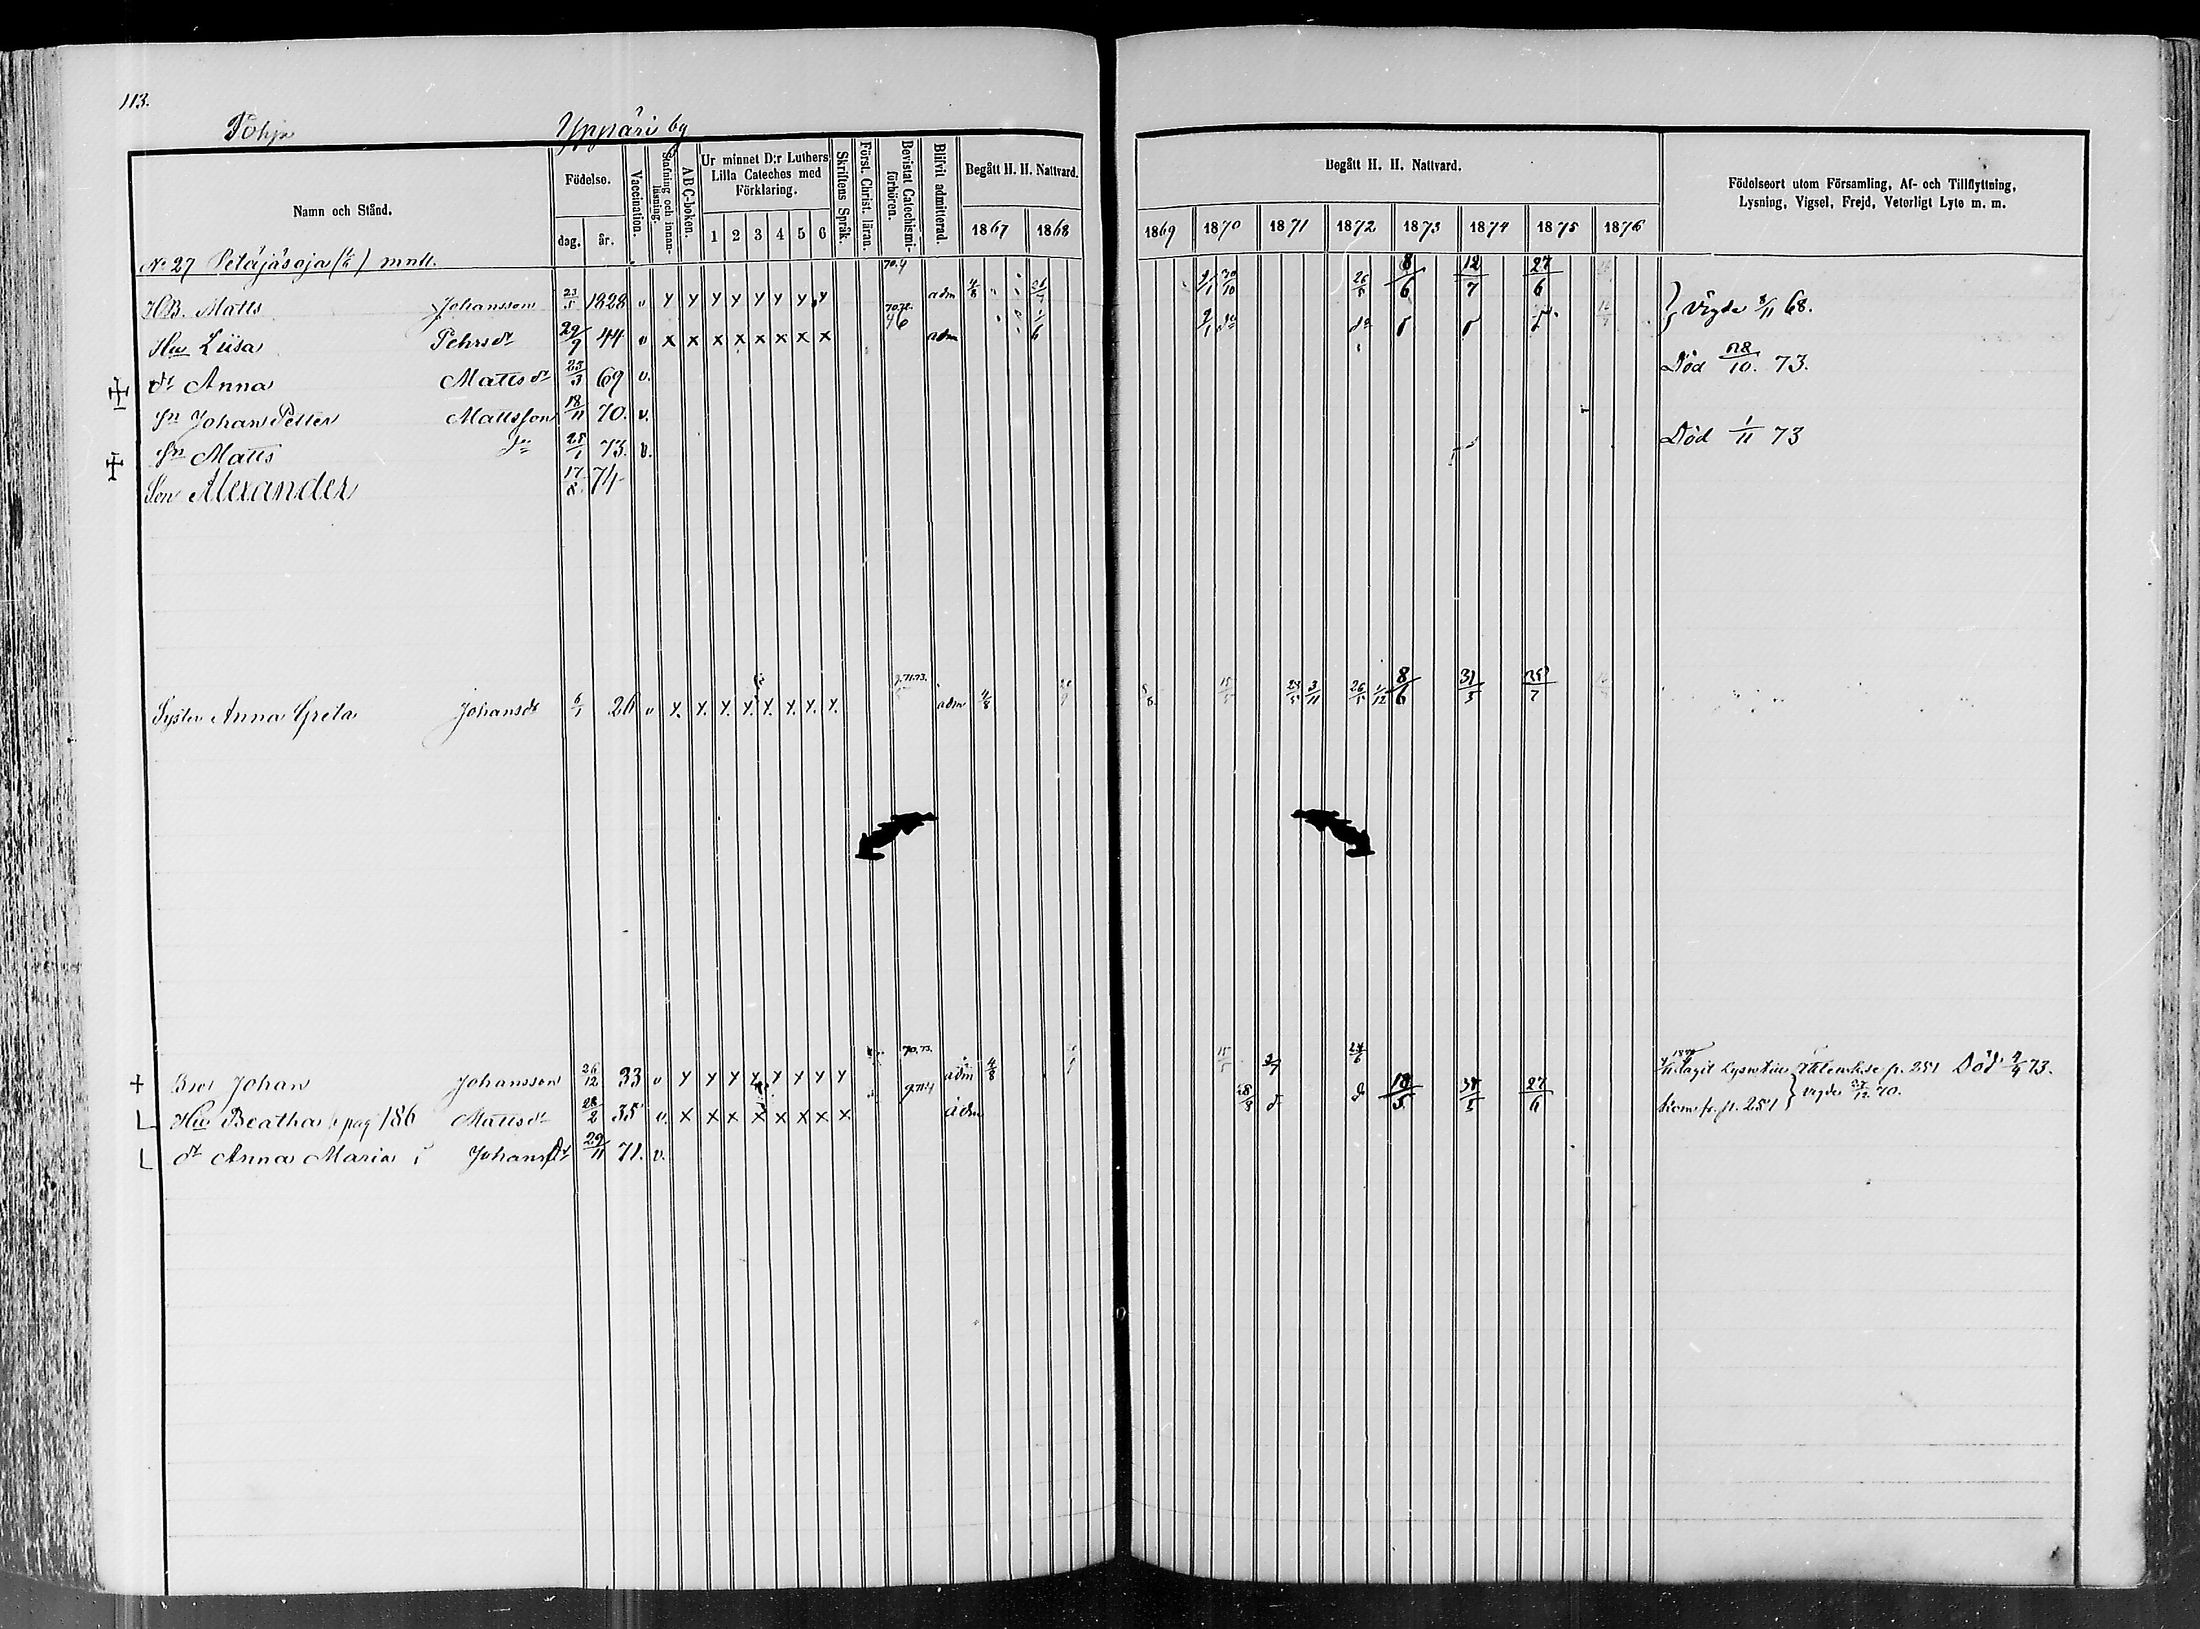 113.
Pohja Yppäri by
Namn och Stånd. Födelse. dag. år. Vaccination. Stafning och innanläsning. ABC-boken. Ur minnet D:r Luthers Lilla Cateches med Förklaring. 1 2 3 4 5 6 Skriftens Språk. Först. Christ. läran. Bevistat Catechismiförhören. Blifvit admitterad. Begått H. H. Nattvard. 1867 1868
Begått H. H. Nattvard. 1869 1870 1871 1872 1873 1874 1875 1876 Födelseort utom Församling, Af- och Tillflyttning, Lysning, Vigsel, Frejd, Veterligt Lyte m. m.
No 27 Petäjäsoja mntl.
HB. Matts Johansson 23/5 1828 v adm 4/8 2/1 30/10 26/5 8/6 12/7 27/6 } Vigde 8/11 68.
Hu Liisa Pehrsdr 29/9 44 v x x x x x x x x adm 1/6 2/1 do do
dr Anna Mattsdr 23/3 69 v. Död 28/10. 73.
Sn Johan Petter Mattsson 18/11 70. v.
Sn Matts do 25/1 73. v. Död 1/11 73
Son Alexander 17/8. 74
Syster Anna Greta Johansdr 6/1 26 v adm 4/8 15/5 3/11 26/5 1/12 8/6 31/5 25/7
Bror Johan Johansson 26/12 33 v 70.73. adm 4/8 15/5 2/7 24/6 p. 251 Död 2/4 73.
Hu Beatha pag 186 Mattsdr 28/2 35 v. x x x x x x x x adm 18/5 31/5 27/6 Kom fr. p. 251 } vigde 27/12 70.
dr Anna Maria Johansdr 29/11 71. v.